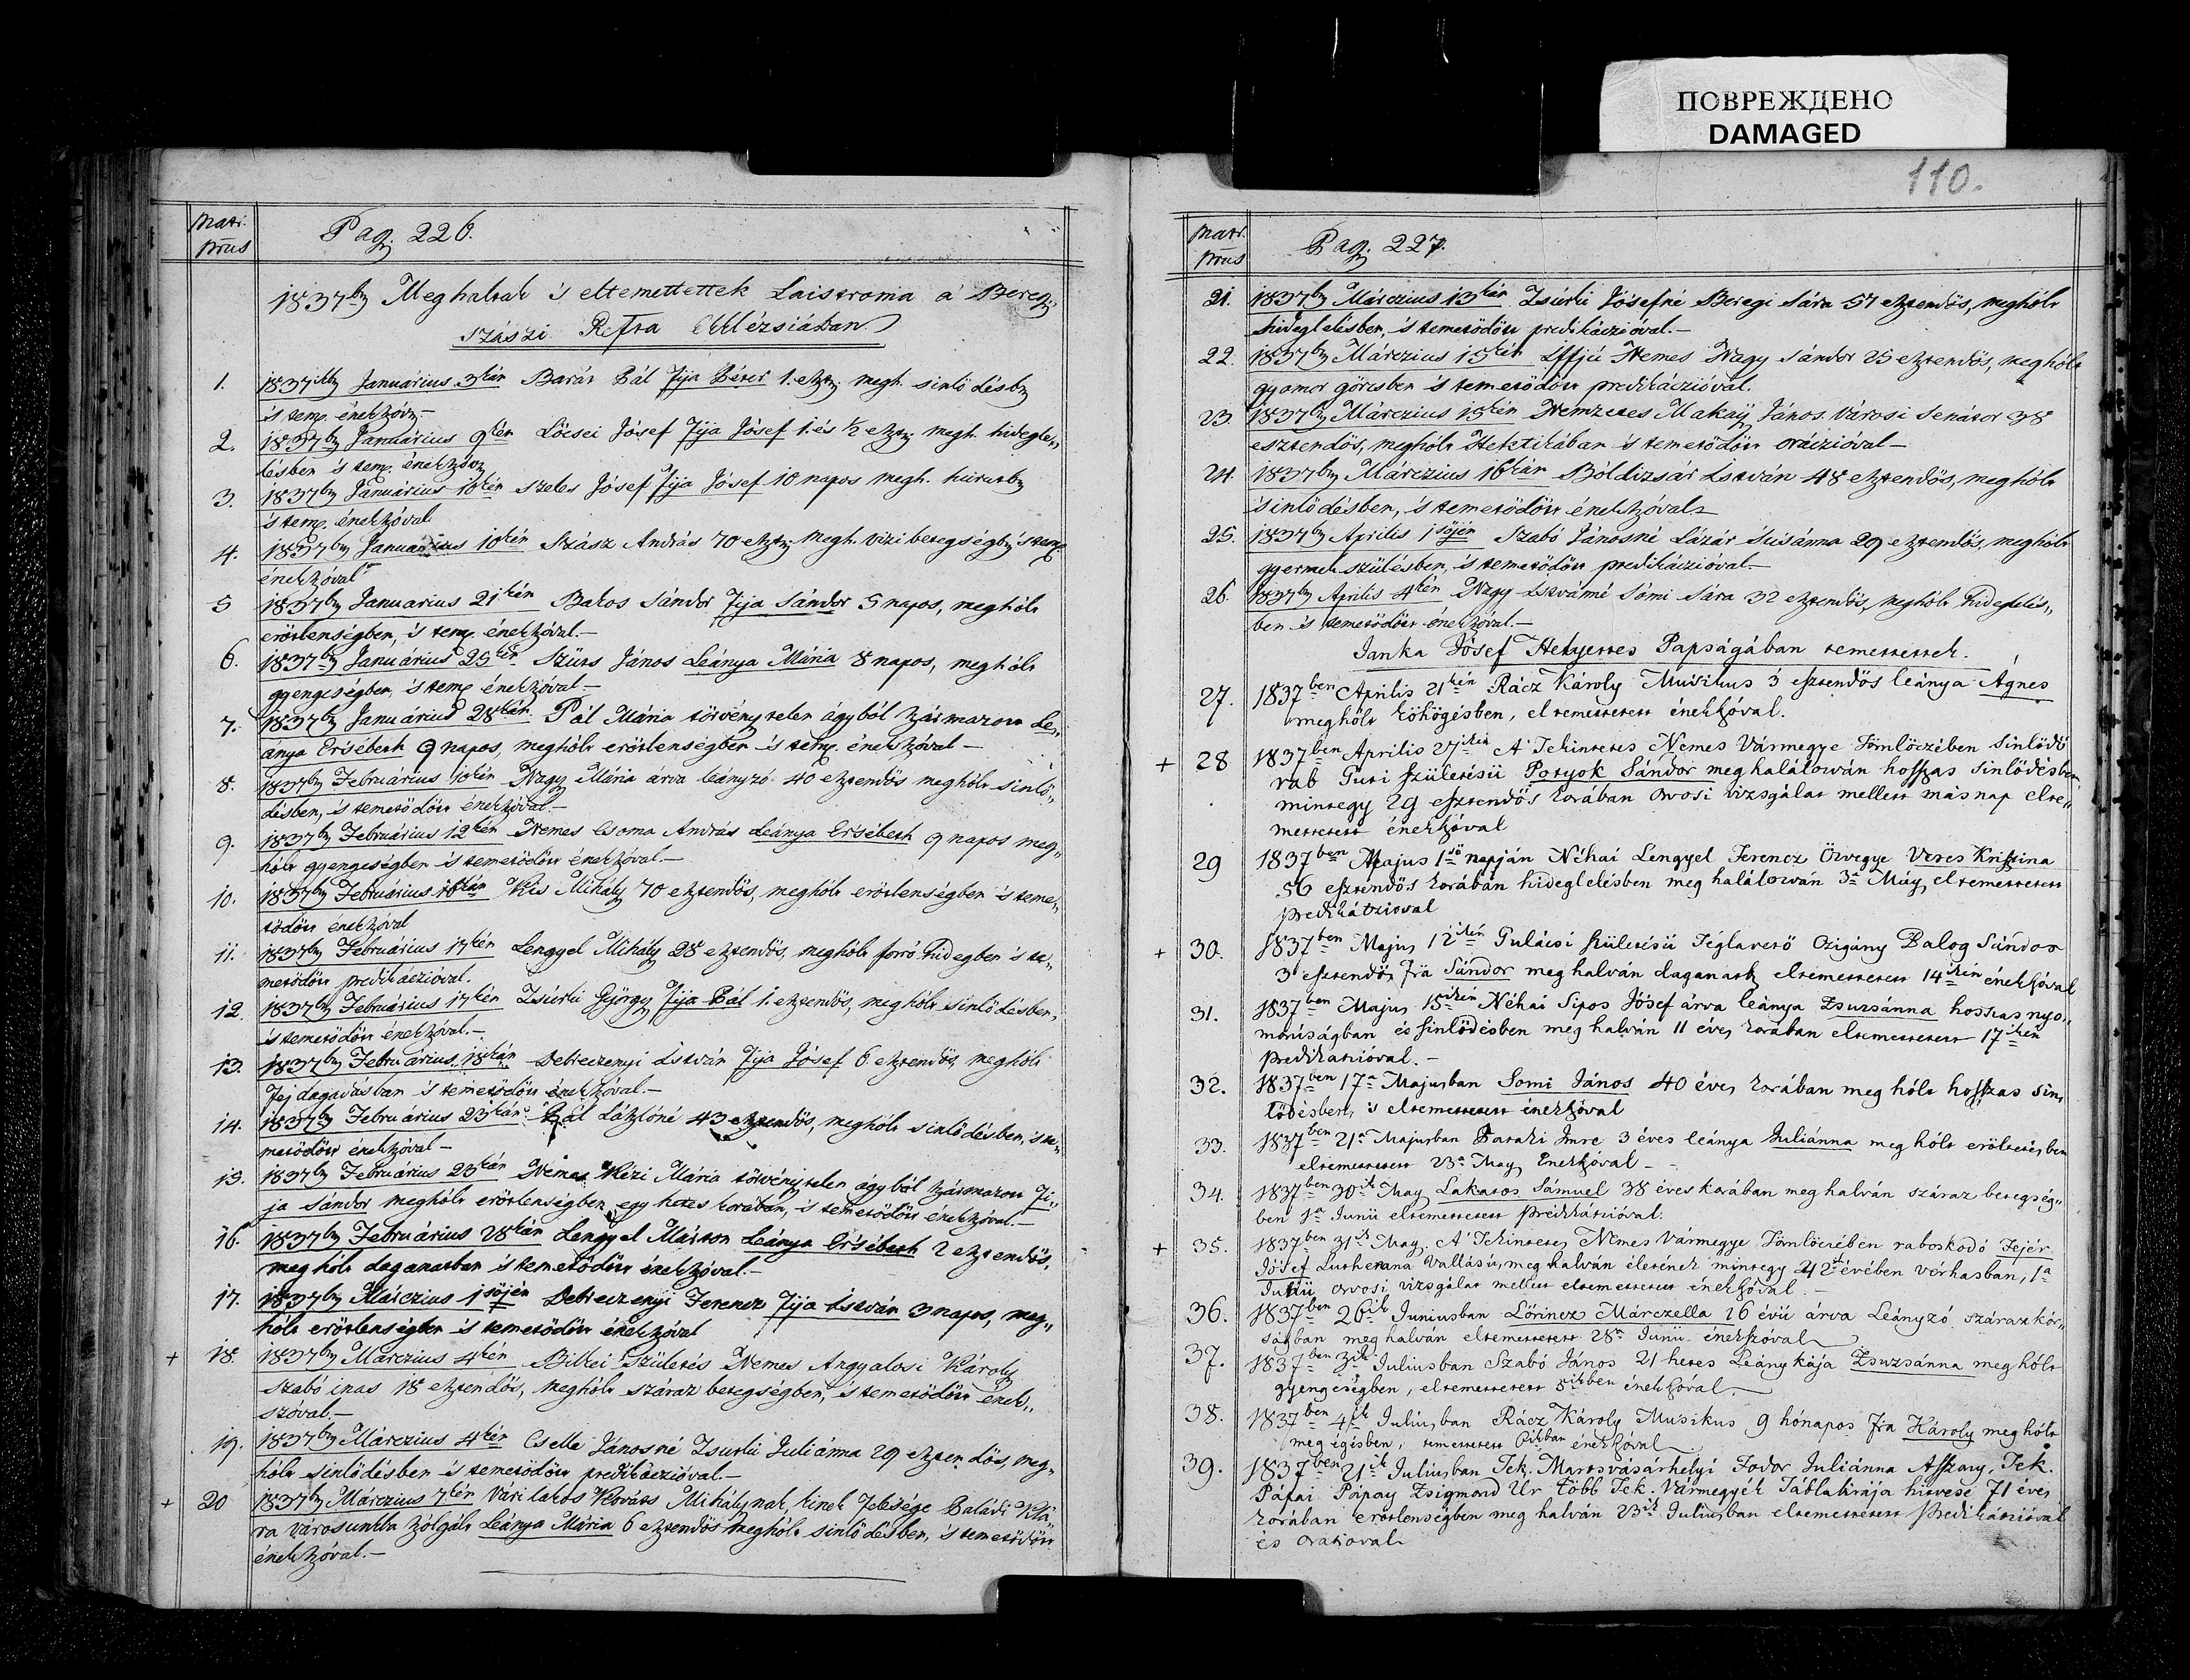 ПОВРЕЖДЕНО
DAMAGED
110.
Matr. Nrus
Pag. 226.
1837ben Meghaltak 's eltemettettek Laistroma a' Bereg,
szászi Refta Ekklézsiában
1. 1837ikben Januárius 3kán Barát Pál Fija Péter 1. eszt: megh. sinlődésben
's tem. énekszóv.—
2. 1837ben Januárius 9kén Lőcsei Jósef Fija Jósef 1. és 1/2 eszt: megh. hideglel,,
lésben 's tem. énekszóv
3. 1837ben Januárius 10kén Szeles Jósef Fija Jósef 10 napos megh. hurutben
's tem. énekszóval
4. 1837ben Januárius 10kén Szász András 70 eszt: megh. vizi betegségben 's tem.
énekszóval
5 1837ben Januarius 21kén Bakos Sándor Fija Sándor 5 napos, meghólt
erőtlenségben, 's tem. énekszóval.—
6. 1837ben Januárius 25kén Szüts János Leánya Mária 8 napos, meghólt
gyengeségben, 's tem. énekszóval—
7. 1837ben Januárius 28kán Pál Mária törvénytelen ágyból származott Le,,
ánya Ersébeth 9 napos, meghólt erőtlenségben 's tem. énekszóval—
8. 1837ben Februárius 10kén Nagy Mária árva leányzó 40 esztendős meghólt sinlő,,
désben, 's temetődött énekszóval.—
9. 1837ben Februárius 12kén Nemes Csoma András Leánya Ersébeth 9 napos meg,,
hólt gyengeségben 's temetődött énekszóval.—
10. 1837ben Februárius 16kán Kis Mihály 70 esztendős, meghólt erőtlenségben 's teme,,
tődött énekszóval
11. 1837ben Februárius 17kén Lengyel Mihály 28 esztendős, meghólt forró hidegben 's te,,
metődött predikaczióval.
12. 1837ben Februárius 17kén Zsurki György Fija Pál 1. esztendős, meghólt sinlődésben,
's temetődött énekszóval.—
13. 1837ben Februárius 18kán Debreczenyi István Fija Jósef 6 esztendős, meghólt
Fej dagadásban 's temetődött énekszóval.—
14. 1837ben Februárius 23kán Pál Lászlóné 43 esztendős, meghólt sinlődésben, 's te,,
metődött énekszóval—
15. 1837ben Februárius 23kán Nemes Kézi Mária törvénytelen ágyból származott Fi,,
ja Sándor meghólt erőtlenségben egy hetes korában, 's temetődött énekszóval.—
16. 1837ben Februárius 28kán Lengyel Márton Leánya Ersébeth 2 esztendős,
meghólt daganatban 's temetődött énekszóval.—
17. 1837ben Márczius 1sőjén Debreczenyi Ferencz Fija István 3 napos, meg,,
hólt erőtlenségben 's temetődött énekszóval
+ 18. 1837ben Márczius 4kén Bilkei Születés Nemes Angyalosi Károly
szabó inas 18 esztendős, meghólt száraz betegségben, 's temetődött ének,,
szóval.—
19. 1837ben Márczius 4kén Cselle Jánosné Zsurki Juliánna 29 esztendős, meg,,
hólt sinlődésben 's temetődött predikáczióval.—
+ 20 1837ben Márczius 7kén Vári lakos Kováts Mihálynak, kinek Felesége Baládi Klá,,
ra városunkba szólgált Leánya Mária 6 esztendős meghólt sinlődésben, 's temetődött
énekszóval.—
Matr. Nrus
Pag. 227.
21. 1837ben Márczius 13kán Zsúrki Jósefné Beregi Sára 57 esztendős, meghólt
hideglelésben, 's temetődött predikáczióval.—
22. 1837ben Márczius 15kén Iffjú Nemes Nagy Sándor 25 esztendős, meghólt
gyomor görcsben 's temetődött predikáczióval.
23. 1837ben Márczius 15kén Nemzetes Makay János Városi Senátor 38
esztendős, meghólt Hektikában 's temetődött oráczióval—
24. 1837ben Márczius 16kán Bóldizsár István 48 esztendős, meghólt
sinlődésben, 's temetődött énekszóval
25. 1837ben Aprilis 1sőjén Szabó Jánosné Lázár Susánna 29 esztendős, meghólt
gyermek szülésben, 's temetődött predikáczióval.—
26. 1837ben Aprilis 4kén Nagy Istvánné Sómi Sára 32 esztendős, meghólt hideglelés,,
ben 's temetődött énekszóval.—
Janka Jósef Helyettes Papságában temettettek.
27. 1837ben Aprilis 21kén Rácz Károly Musikus 3 esztendős leánya Ágnes
meghólt köhögésben, eltemettetett énekszóval.
+ 28 1837ben Aprilis 27ikén A' Tekintetes Nemes Vármegye Tömlöczében Sinlődő
rab Guti születésü Potyok Sándor meghalálozván hosszas sinlődésben
mintegy 29 esztendős korában orvosi vizsgálat mellett másnap elte,,
mettetett énekszóval
29 1837ben Majus 1ső napján Néhai Lengyel Ferencz Özvegye Veres Krisztina
56 esztendős korában hideglelésben meg halálozván 3a May eltemettetett
predikátzioval
+ 30. 1837ben Majus 12ikén Gulácsi születésü Téglavető Czigány Balog Sándor
3 esztendős fia Sándor meghalván daganatb eltemettetett 14ikén énekszóval
31. 1837ben Majus 15ikén Néhai Sipos Jósef árva leánya Zsuzsánna hosszas nyo,,
moruságban és sinlődésben meg halván 11 éves korában eltemettetett 17ikén
predikatzióval.—
32. 1837ben 17a Majusban Somi János 40 éves korában meg hólt hosszas sin,,
lődésben, 's eltemettetett énekszóval
33. 1837ben 21a Majusban Pataki Imre 3 éves leánya Juliánna meg hólt erőltetésben
eltemettetett 23a May énekszóval—
34. 1837ben 30ik May Lakatos Sámuel 38 éves korában meg halván száraz betegség,,
ben 1a Junii eltemettetett predikátzióval.
+ 35. 1837ben 31ik May, A' Tekintetes Nemes Vármegye Tömlöczében raboskodó Fejér
Jósef Lutherana Vallásu, meg halván életének mintegy 42ik évében vérhasban, 1a
Junii orvosi vizsgálat mellett eltemettetett énekszóval.—
36. 1837ben 26ik Juniusban Lőrincz Márczella 16 évü árva Leányzó szárazkór,,
ságban meg halván eltemettetett 28a Junii énekszóval
37. 1837ben 3ik Juliusban Szabó János 21 hetes Leánykája Zsuzsánna meg hólt
gyengeségben, eltemettetett 5ikben énekszóval.
38. 1837ben 4ik Juliusban Rácz Károly Musikus 9 hónapos fia Károly meg hólt
meg égésben, temettetett 6ikban énekszóval
39. 1837ben 21ik Juliusban Tek. Martsvásárhelyi Fodor Juliánna Asszony, Tek.
Pápai Pápay Zsigmond Úr Több Tek. Vármegyék Táblabirája hitvese 71 éves
korában erőtlenségben meg halván 23ik Juliusban eltemettetett Predikátzióval
és oratioval